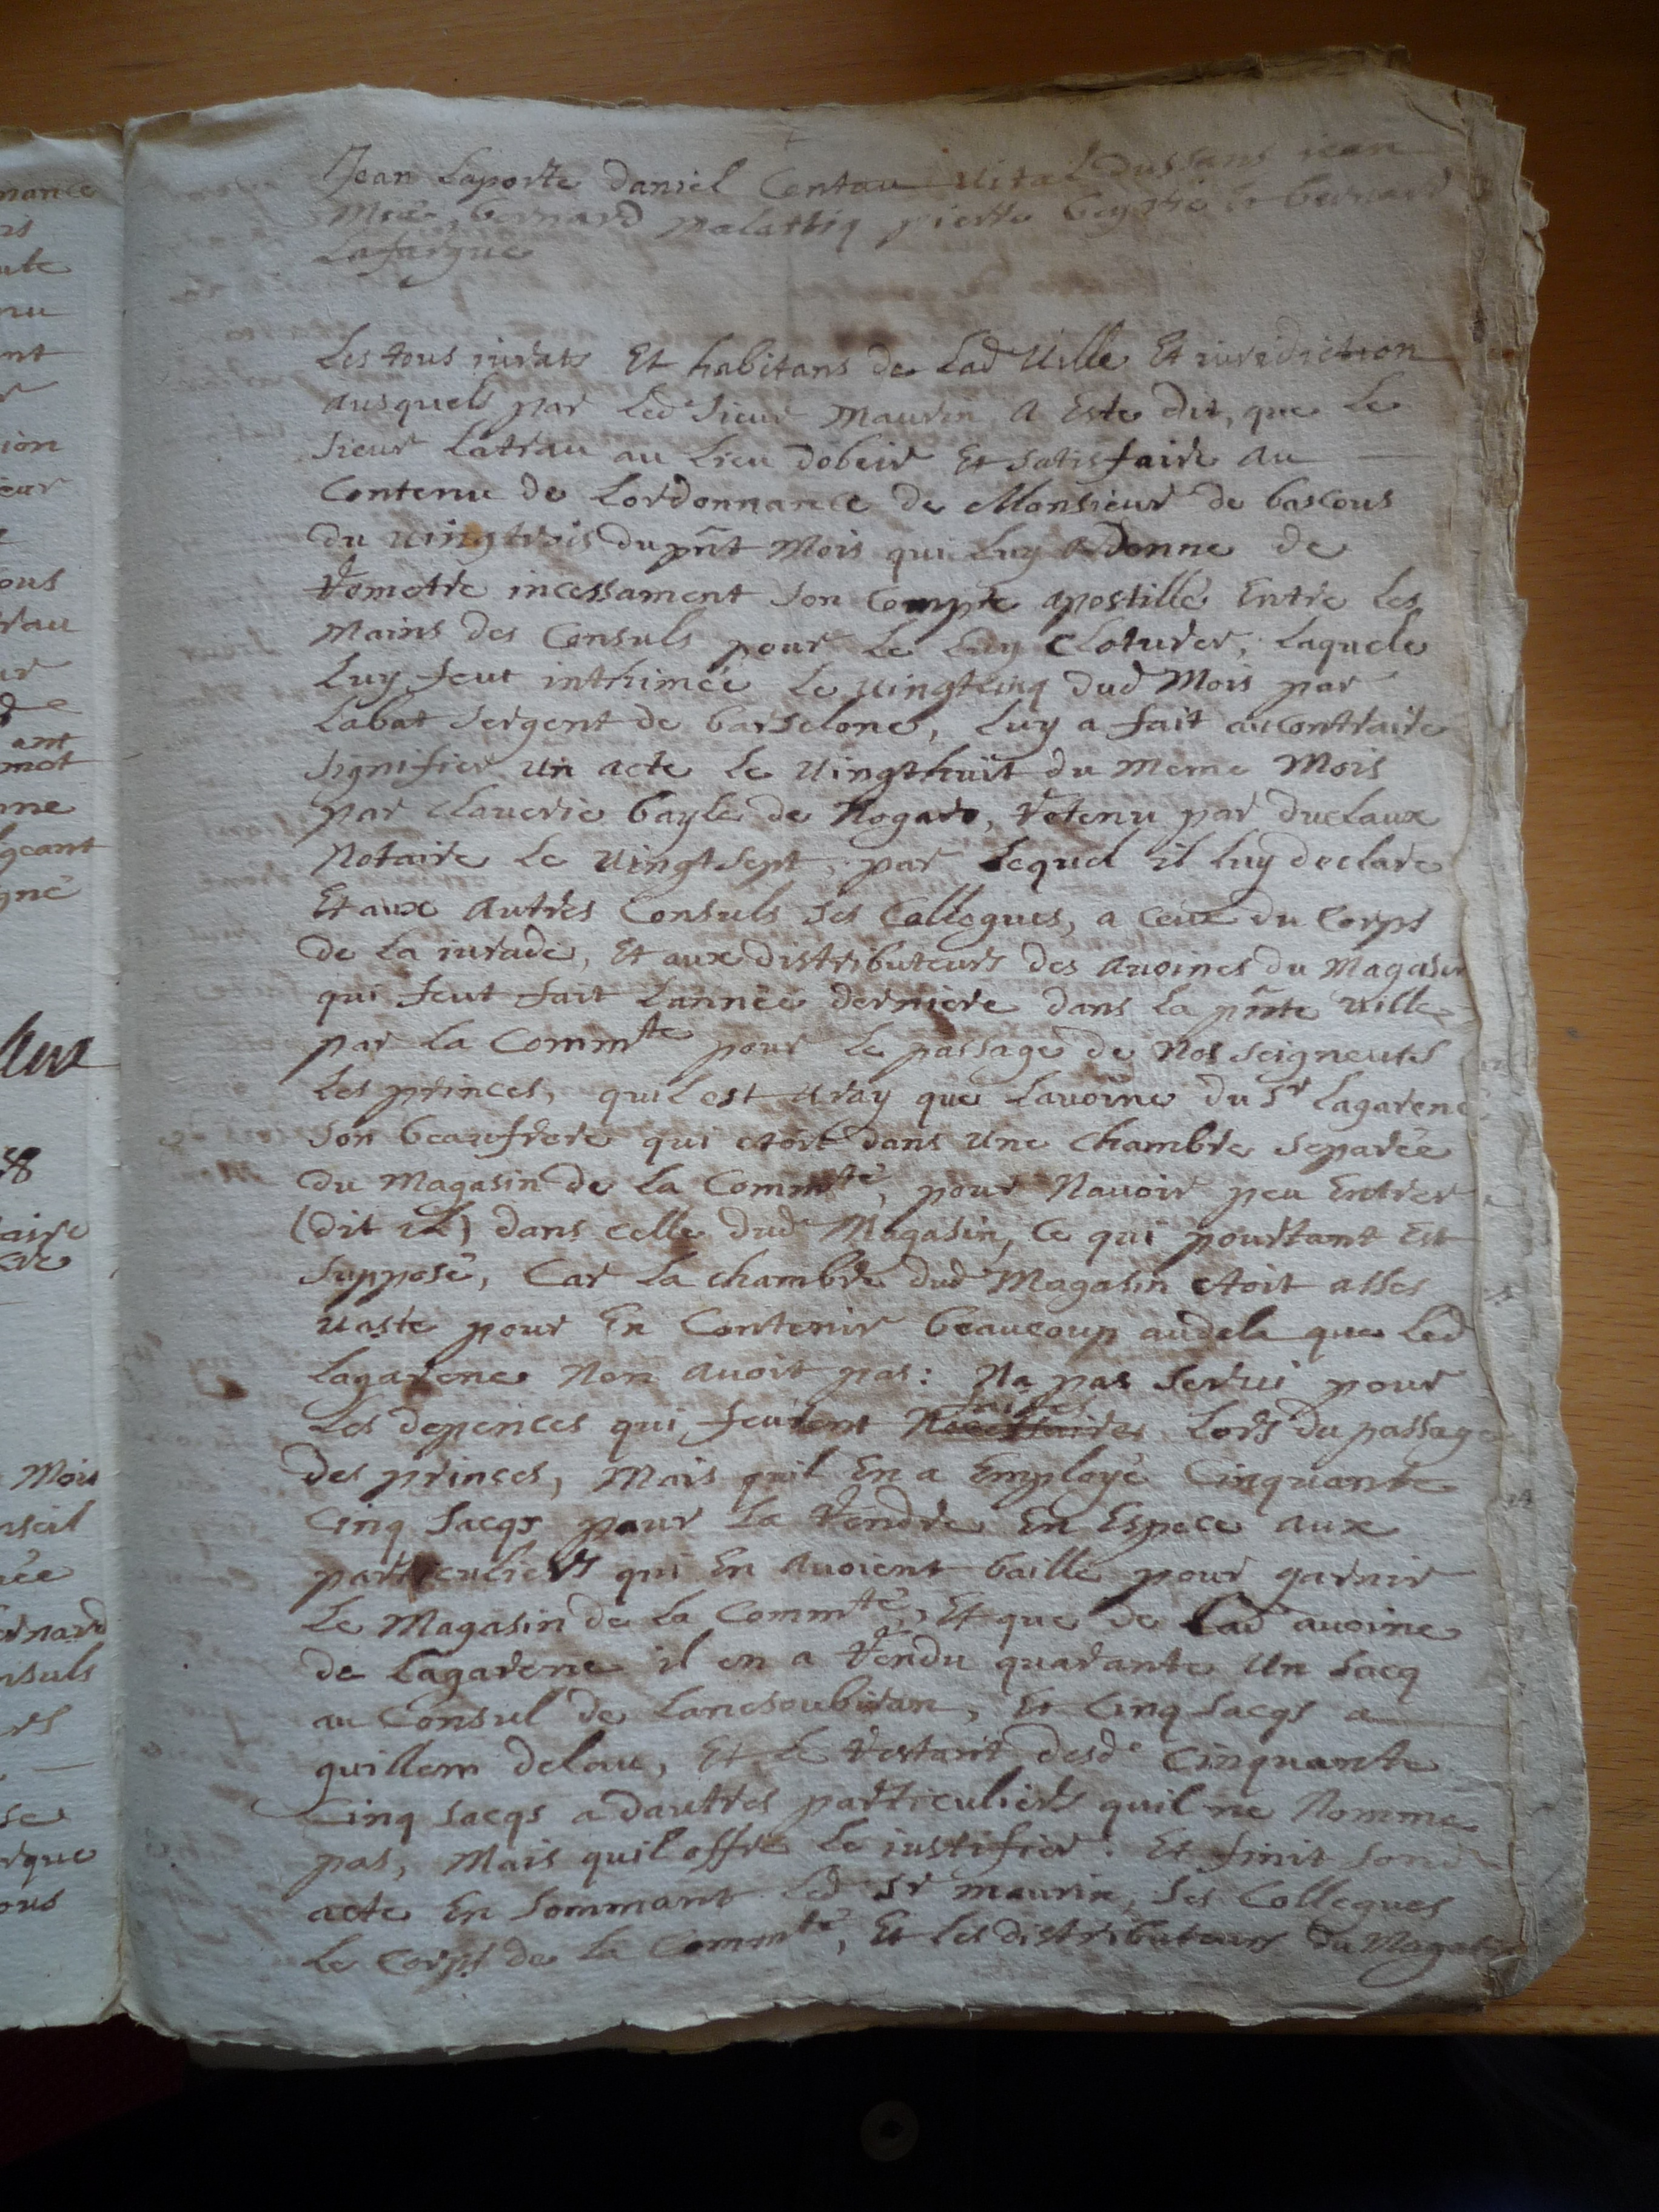 Jean Laporte daniel Centau Vital Dussans jean
Mieé, bernard palattiq pierre beyrie & bernard
Lafargue
Les tous jurats Et habitans de Lad Ville Et juridiction
ausquels par Led Sieur Maurin, a Este dit, que Le
Sieur Latrau au Lieu dobeir Et satisfaire au
Contenu de Lordonnance de Monsieur de bascous
du vingtrois du pñt Mois qui Luy ordonne de
remetre incessament Son Compte apostillé Entre Les
Mains des Consuls pour Le Luy Cloturer, Laquele
Luy feut inthimée Le vingtcinq dud Mois par
Labat Sergent de barselone, Luy a fait aucontraire
Signifier un acte Le vingthuit du meme Mois
par Claverie bayle de Nogaro, retenu par duclaux
Notaire Le vingtsept, par Lequel il Luy declare
Et aux autres Consuls Ses Collegues, a Ceux du Corps
de La jurade, Et aux distributeurs des avoines du Magasin
qui feut fait Lannée derniere dans La pñte ville
par La Commte pour Le passage de Nos seigneurs
Les princes, quil est vray que Lavoine du Sr Lagarene
Son beaufrere qui etoit dans une Chambre Separée
du Magasin de La Commté, pour Navoir peu Entrer
(dit il) dans celle dud Magasin, Ce qui pourtant Est
Supposé, Car La chambre dud Magasin etoit asses
vaste pour En Contenir beaucoup audela que Led
Lagarene Non avoit pas: Na pas Servi pour
faites
Les depences qui feurent Necessaires Lors du passage
des princes, Mais quil En a Employé Cinquante
Cinq Sacqs pour La rendre En Espece aux
particuliers qui En avoient baillé pour garnir
Le Magasin de La Commté, Et que de Lad avoine
de Lagarene il en a vendu quarante un Sacq
au Consul de Lanesoubiran, Et Cinq Sacqs a
guillem delau, Et Le restant desd Cinquante
Cinq Sacqs a dautres particuliers quil ne Nomme
pas, Mais quil offre Le justifier: Et finit Sond
acte En Sommant Led Sr maurin, Ses Collegues
Le Corps de La Commté, Et Les distributeurs du Magasin